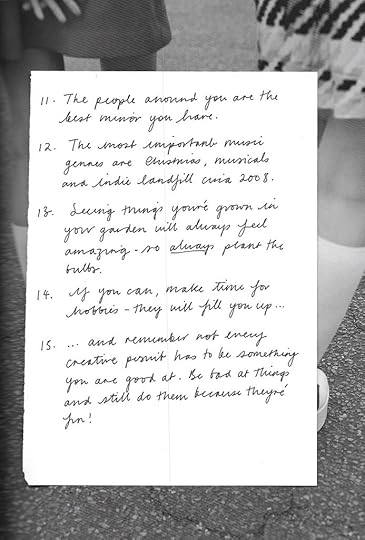 11. The people around you are the
best mirror you have.
12. The most important music
genres are Christmas, musicals
and indie landfill circa 2008.
13. Seeing things you've grown in
your garden will always feel
amazing - so always plant the
bulbs.
14. If you can, make time for
hobbies - they will fill you up...
15. ... and remember not every
creative pursuit has to be something
you are good at. Be bad at things
and still do them because they're
fun!